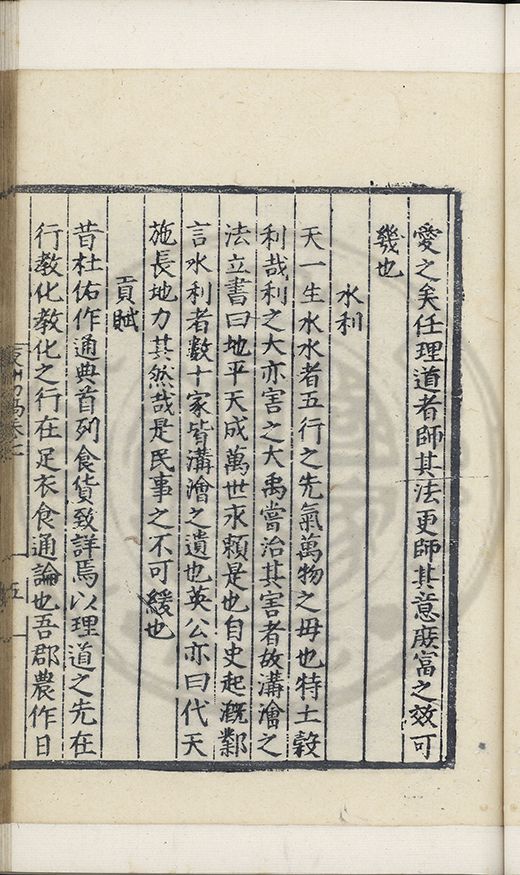 愛之矣任理道者師其法更師其意庶富之效可
幾也
水利
天一生水水者五行之先氣萬物之毋也特土穀
利哉利之大亦害之大禹嘗治其害者故溝澮之
法立書曰地平天成萬世永頼是也自史起漑鄴
言水利者數十家皆溝澮之遺也英公亦曰代天
施長地力其然哉是民事之不可緩也
貢賦
昔杜佑作通典首列食貨致詳焉以理道之先在
行教化教化之行在足衣食通論也吾郡農作日